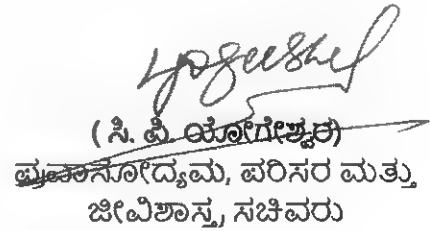 yogeeshwar
( ಸಿ. ಪಿ. ಯೋಗೇಶ್ವರ)
ಪ್ರವಾಸೋದ್ಯಮ, ಪರಿಸರ ಮತ್ತು
ಜೀವಿಶಾಸ್ತ್ರ ಸಚಿವರು